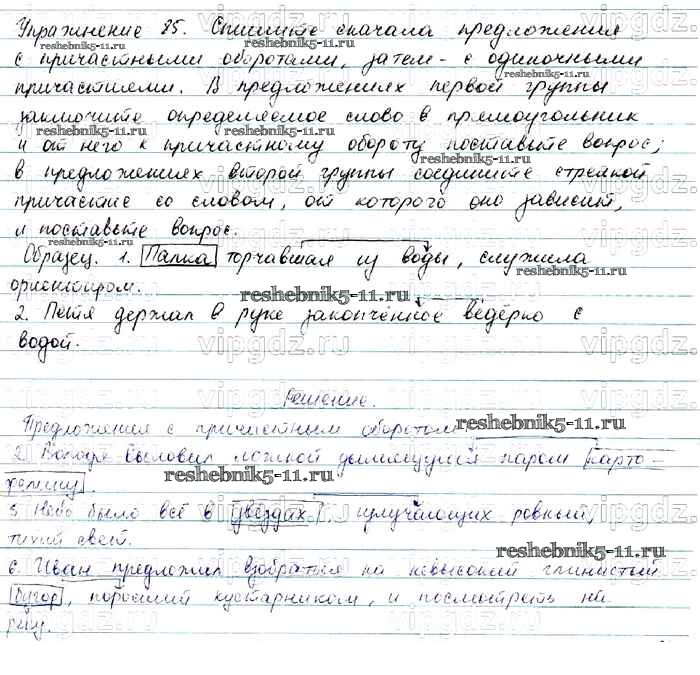 Упражнение 85. Спишите сначала предложения
с причастными оборотами, затем - с одиночными
причастиями. В предложениях первой группы
заключите определяемое слово в прямоугольник
и от него к причастному обороту поставьте вопрос;
в предложениях второй группы соедините стрелкой
причастие со словом, от которого оно зависит,
и поставьте вопрос.
Образец. 1. Палка торчавшая из воды, служила
ориентиром.
2. Петя держал в руке закопчённое ведёрко с
водой.
Решение.
Предложения с причастным оборотом
2. Володя выловил ложкой дымящуюся паром карто-
фелину.
3. Небо было всё в звёздах, излучающих ровный,
тихий свет.
6. Иван предложил взобраться на невысокий глинистый
бугор, поросший кустарником, и посмотреть на
реку.
reshebnik5-11.ru
reshebnik5-11.ru
reshebnik5-11.ru
reshebnik5-11.ru
reshebnik5-11.ru
reshebnik5-11.ru
reshebnik5-11.ru
reshebnik5-11.ru
reshebnik5-11.ru
reshebnik5-11.ru
reshebnik5-11.ru
vipgdz.ru